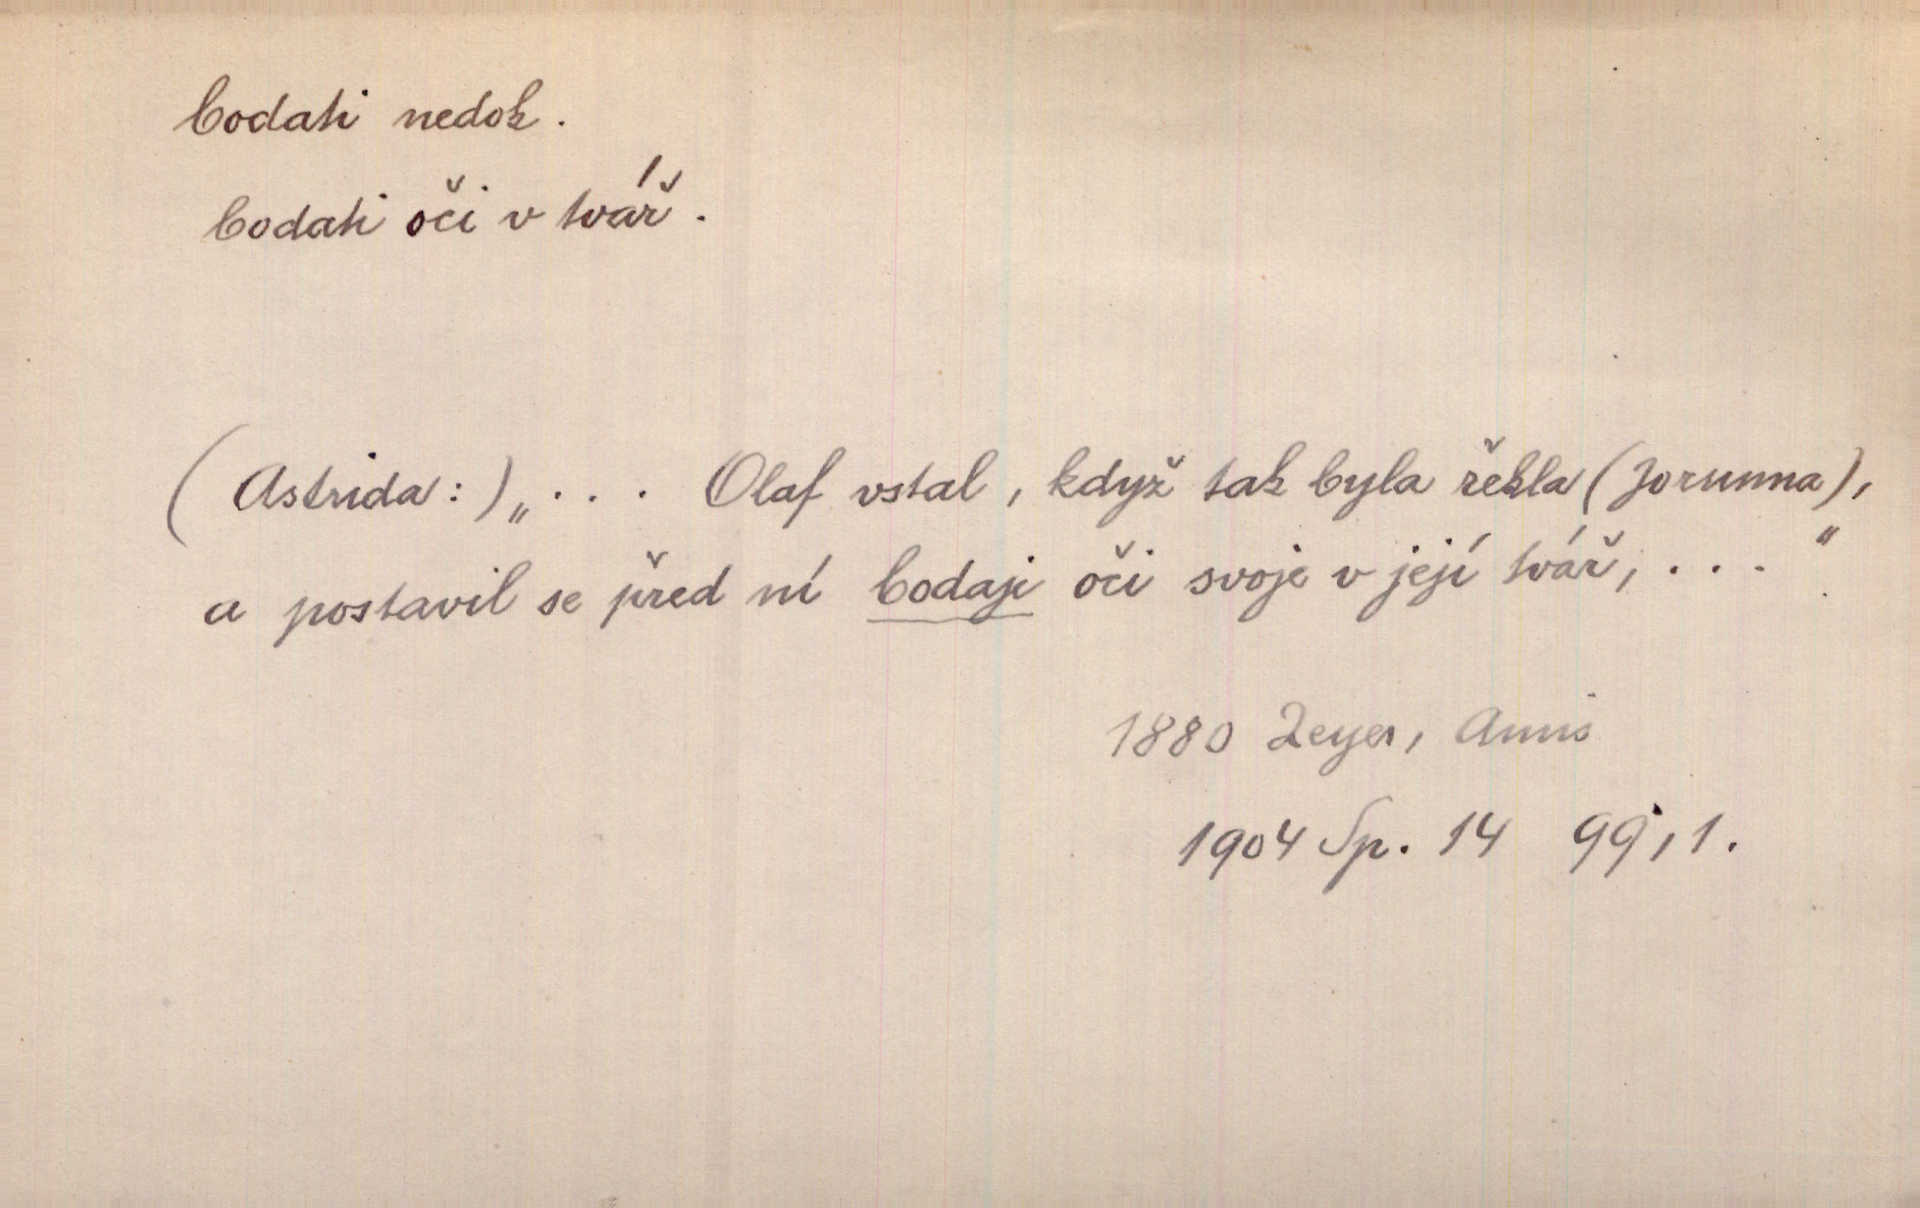 bodati nedok.
bodati oči v tvář.
(Astrida:) „... Olaf vstal, když tak byla řekla (Jorunna),
a postavil se před ní bodaje oči svoje v její tvář, ..."
1880 Zeyer, Amis
1904 Sp. 14 99,1.